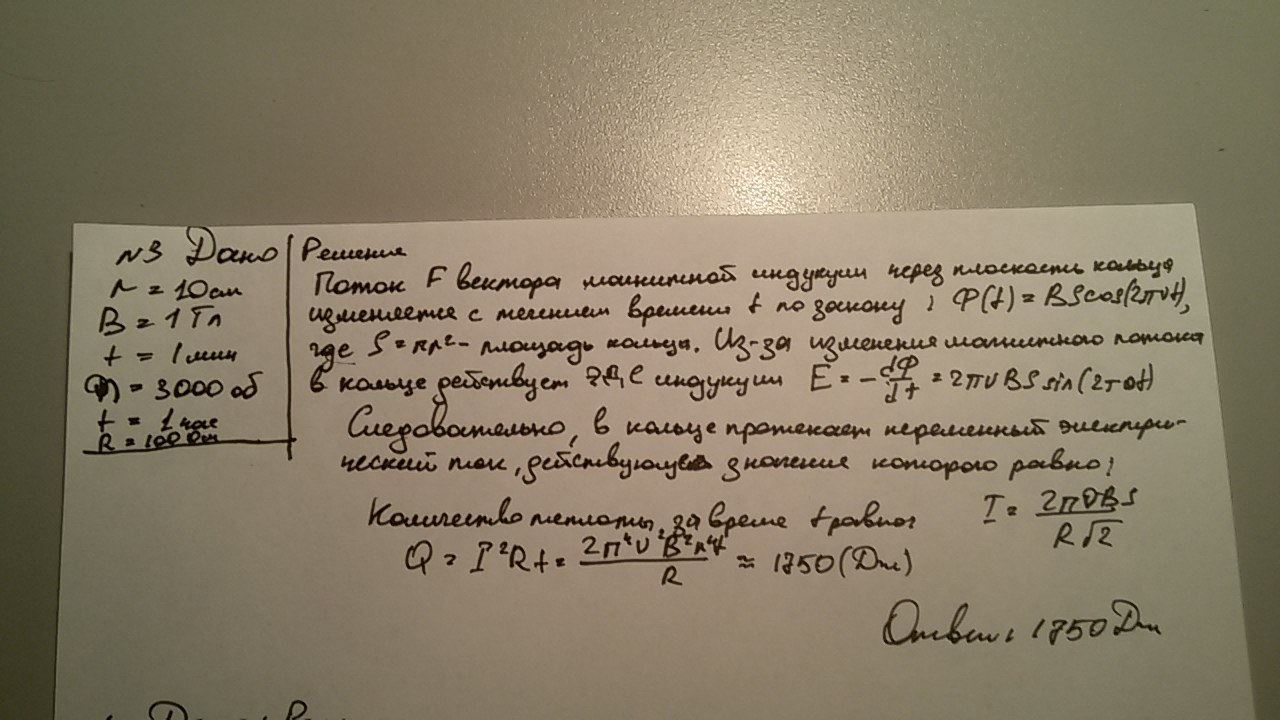 №3 Дано
r = 10см
B = 1 Тл
t = 1 мин
n = 3000 об
t = 1 час
R = 100 Ом
Решение
Поток F вектора магнитной индукции через плоскость кольца
изменяется с течением времени t по закону: Ф(t) = BScos(2πνt),
где S = πr² - площадь кольца. Из-за изменения магнитного потока
в кольце действует ЭДС индукции E = -dФ/dt = 2πνBS sin(2πνt)
Следовательно, в кольце протекает переменный электри-
ческий ток, действующее значение которого равно:
I = 2πνBS / R√2
Количество теплоты за время t равно:
Q = I²Rt = 2π⁴ν²B²r⁴t / R ≈ 1750 (Дж)
Ответ: 1750 Дж